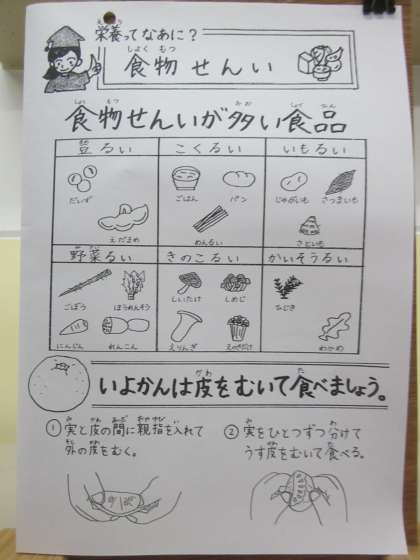 栄養ってなあに？
食物せんい
食物せんいが多い食品
豆るい
こくるい
いもるい
だいず
えだまめ
ごはん
パン
めんるい
じゃがいも
さつまいも
さといも
野菜るい
きのこるい
かいそうるい
ごぼう
ほうれんそう
にんじん
れんこん
しいたけ
しめじ
えりんぎ
えのきだけ
ひじき
わかめ
いよかんは皮をむいて食べましょう。
① 実と皮の間に親指を入れて
外の皮をむく。
② 実をひとつずつ分けて
うす皮をむいて食べる。